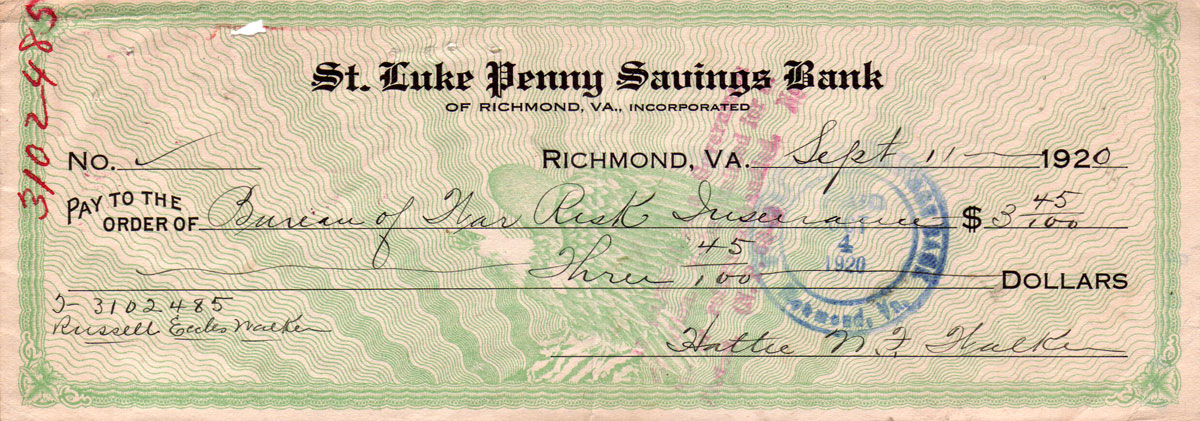 3102485
St. Luke Penny Savings Bank
OF RICHMOND, VA., INCORPORATED
No. ✓ RICHMOND, VA. Sept 11 1920
PAY TO THE ORDER OF Bureau of War Risk Insurance $ 3 45/100
Three 45/100 DOLLARS
T- 3102485
Russell Eccles Walker
Hattie N. F. Walker
4
1920